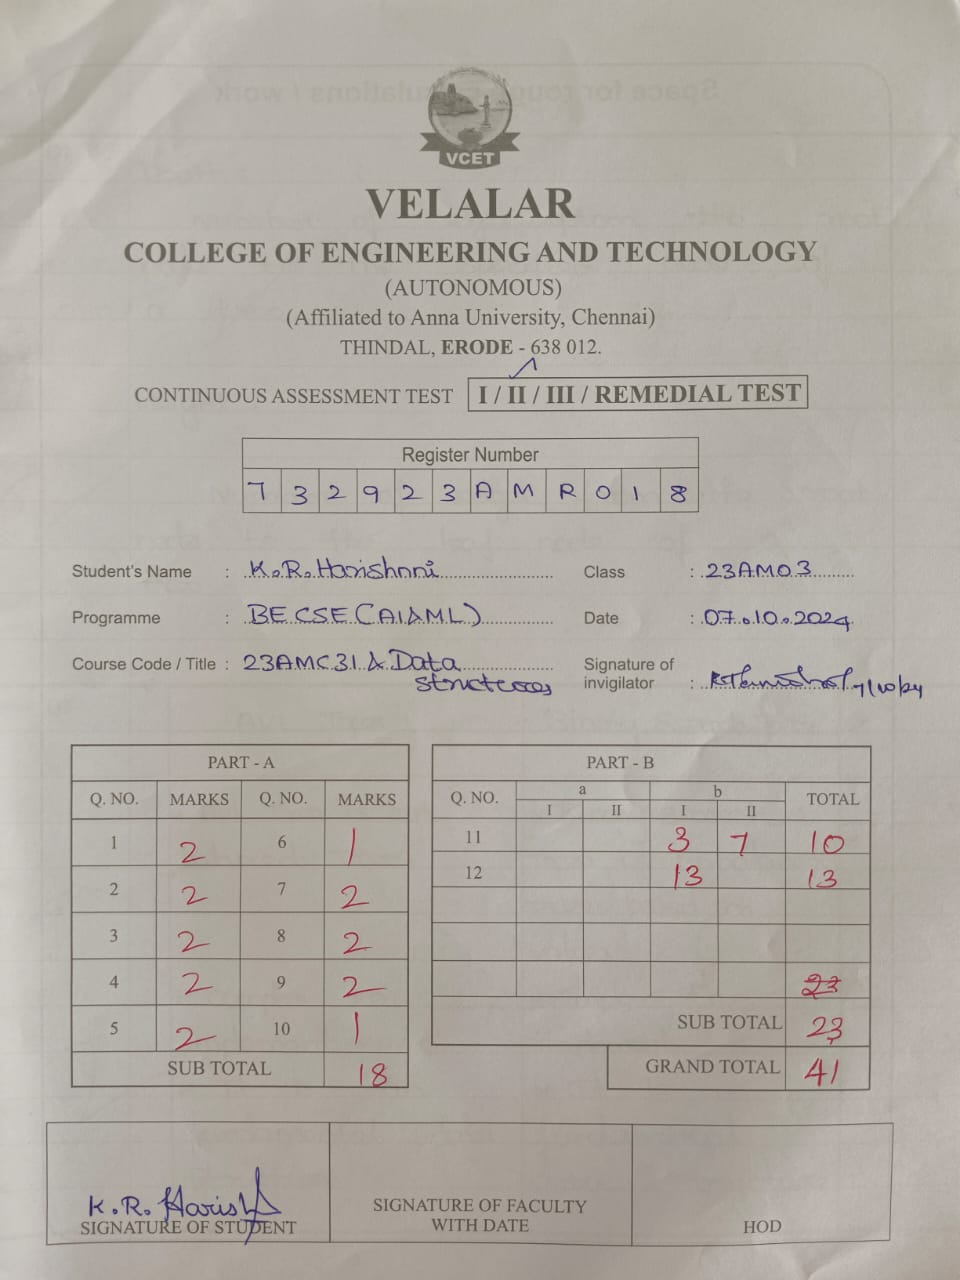 VCET
VELALAR
COLLEGE OF ENGINEERING AND TECHNOLOGY
(AUTONOMOUS)
(Affiliated to Anna University, Chennai)
THINDAL, ERODE - 638 012.
CONTINUOUS ASSESSMENT TEST I / II / III / REMEDIAL TEST
Register Number
7 3 2 9 2 3 A M R 0 1 8
Student's Name : K.R.Harishnni Class : 23AM03
Programme : BE CSE (AI&ML) Date : 07.10.2024
Course Code / Title : 23AMC31 & Data Signature of
invigilator : 7/10/24
PART - A PART - B
Q. NO. MARKS Q. NO. MARKS Q. NO. a b TOTAL
I II I II
1 2 6 1 11 3 7 10
2 2 7 2 12 13 13
3 2 8 2
4 2 9 2 23
5 2 10 1 SUB TOTAL 23
SUB TOTAL 18 GRAND TOTAL 41
K.R. Harish
SIGNATURE OF STUDENT SIGNATURE OF FACULTY
WITH DATE HOD